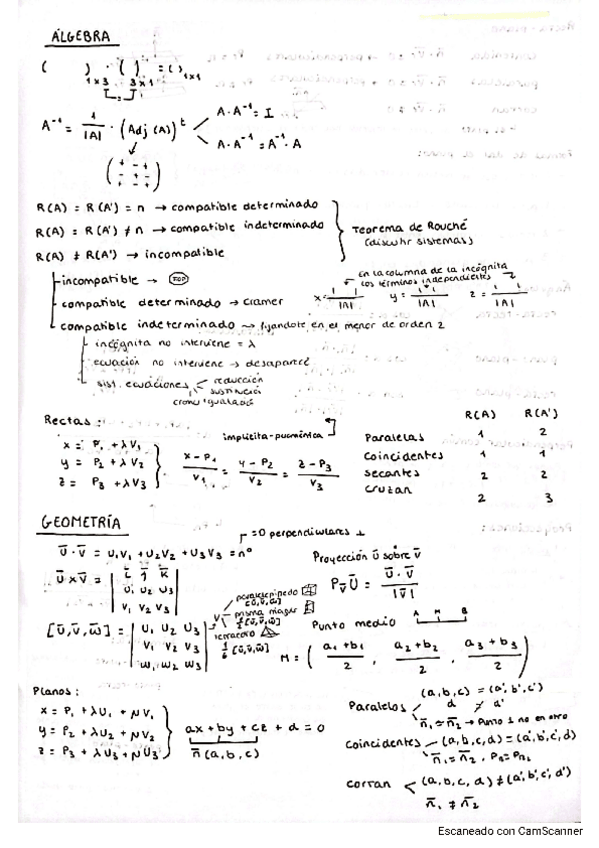 ÁLGEBRA
( ) · ( ) = ( )
1x3 3x1 1x1
A⁻¹ = 1/|A| · (Adj (A))ᵗ
A·A⁻¹ = I
A·A⁻¹ = A⁻¹·A
( + - + / - + - / + - + )
R(A) = R(A') = n → compatible determinado
R(A) = R(A') ≠ n → compatible indeterminado
R(A) ≠ R(A') → incompatible
Teorema de Rouché
(discutir sistemas)
incompatible →
compatible determinado → cramer
En la columna de la incógnita
los términos independientes
x = | |/|A| y = | |/|A| z = | |/|A|
compatible indeterminado → fijandote en el menor de orden 2
incógnita no interviene = λ
ecuación no interviene → desaparece
sist. ecuaciones
reducción
sustitución
Rectas:
x = P₁ + λV₁
y = P₂ + λV₂
z = P₃ + λV₃
implícita-
(x - P₁)/V₁ = (y - P₂)/V₂ = (z - P₃)/V₃
R(A) R(A')
Paralelas 1 2
Coincidentes 1 1
secantes 2 2
cruzan 2 3
GEOMETRÍA
= 0 perpendiculares ⊥
ū · v̄ = u₁v₁ + u₂v₂ + u₃v₃ = nº
ū x v̄ = | ī j̄ k̄ / u₁ u₂ u₃ / v₁ v₂ v₃ |
Proyección ū sobre v̄
P_v̄ ū = ū · v̄ / |v̄|
[ū, v̄, w̄] = | u₁ u₂ u₃ / v₁ v₂ v₃ / w₁ w₂ w₃ |
V
paralelepípedo
[ū, v̄, w̄]
prisma
½ [ū, v̄, w̄]
tetraedro
1/6 [ū, v̄, w̄]
Punto medio
A M B
M = ( (a₁+b₁)/2 , (a₂+b₂)/2 , (a₃+b₃)/2 )
Planos:
x = P₁ + λU₁ + μV₁
y = P₂ + λU₂ + μV₂
z = P₃ + λU₃ + μV₃
ax + by + cz + d = 0
n̄ (a, b, c)
Paralelos
(a, b, c) = (a', b', c')
d ≠ d'
n̄₁ = n̄₂ → Punto 1 no en otro
Coincidentes
(a, b, c, d) = (a', b', c', d')
n̄₁ = n̄₂ , Pπ₁ = Pπ₂
cortan
(a, b, c, d) ≠ (a', b', c', d')
n̄₁ ≠ n̄₂
Escaneado con CamScanner